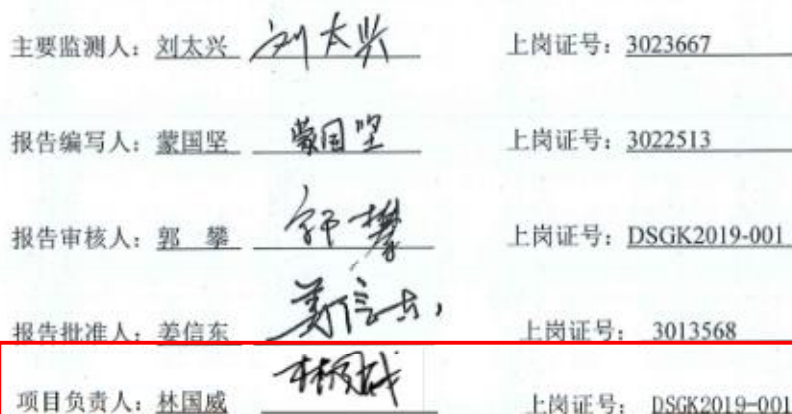 主要监测人：刘太兴 刘太兴 上岗证号：3023667
报告编写人：蒙国坚 蒙国坚 上岗证号：3022513
报告审核人：郭 攀 郭攀 上岗证号：DSGK2019-001
报告批准人：姜信东 姜信东 上岗证号： 3013568
项目负责人：林国威 林国威 上岗证号： DSGK2019-001